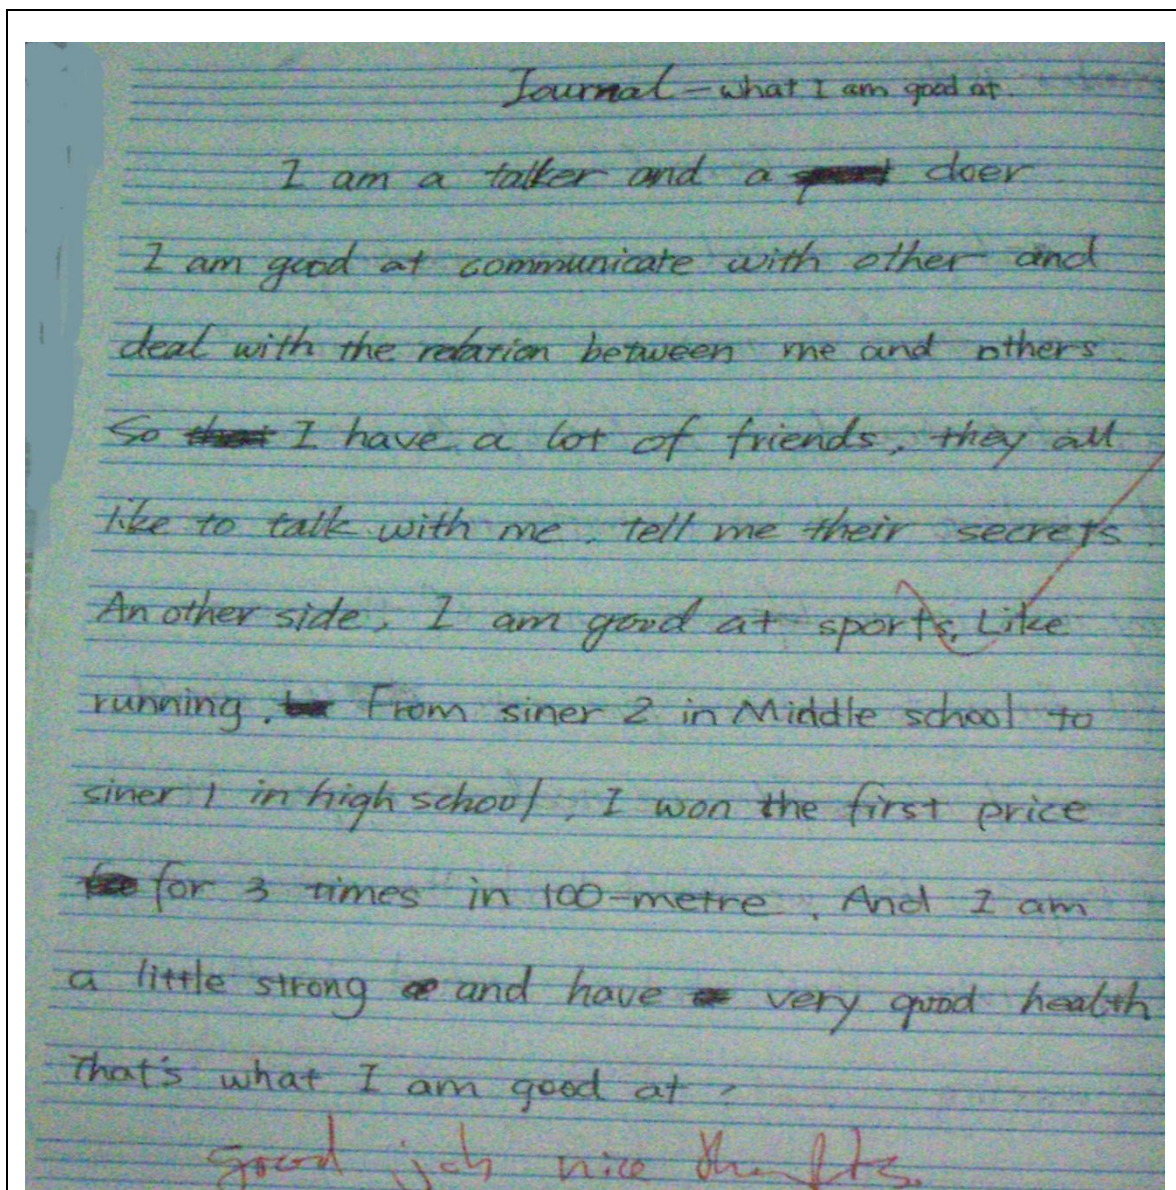 Journal - what I am good at.
I am a talker and a doer
I am good at communicate with other and
deal with the relation between me and others.
So I have a lot of friends, they all
like to talk with me, tell me their secrets.
Another side, I am good at sports, Like
running. From siner 2 in Middle school to
siner 1 in high school, I won the first price
for 3 times in 100-metre. And I am
a little strong and have very good health
That's what I am good at.
Good job nice